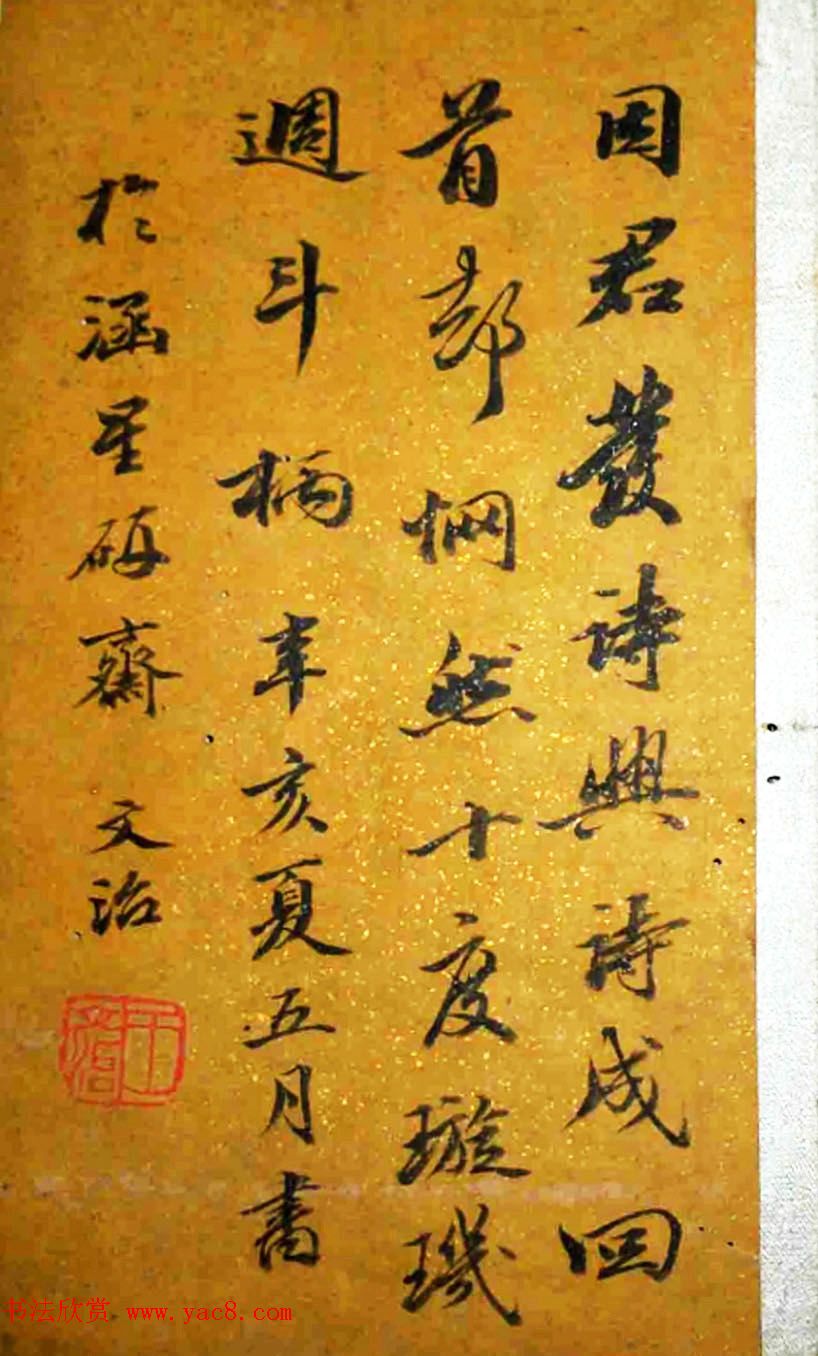 因君發詩興詩成回
首却惘然十度璇璣
週斗柄 辛亥夏五月書
於涵星研齋 文治
王文治
书法欣赏 www.yac8.com